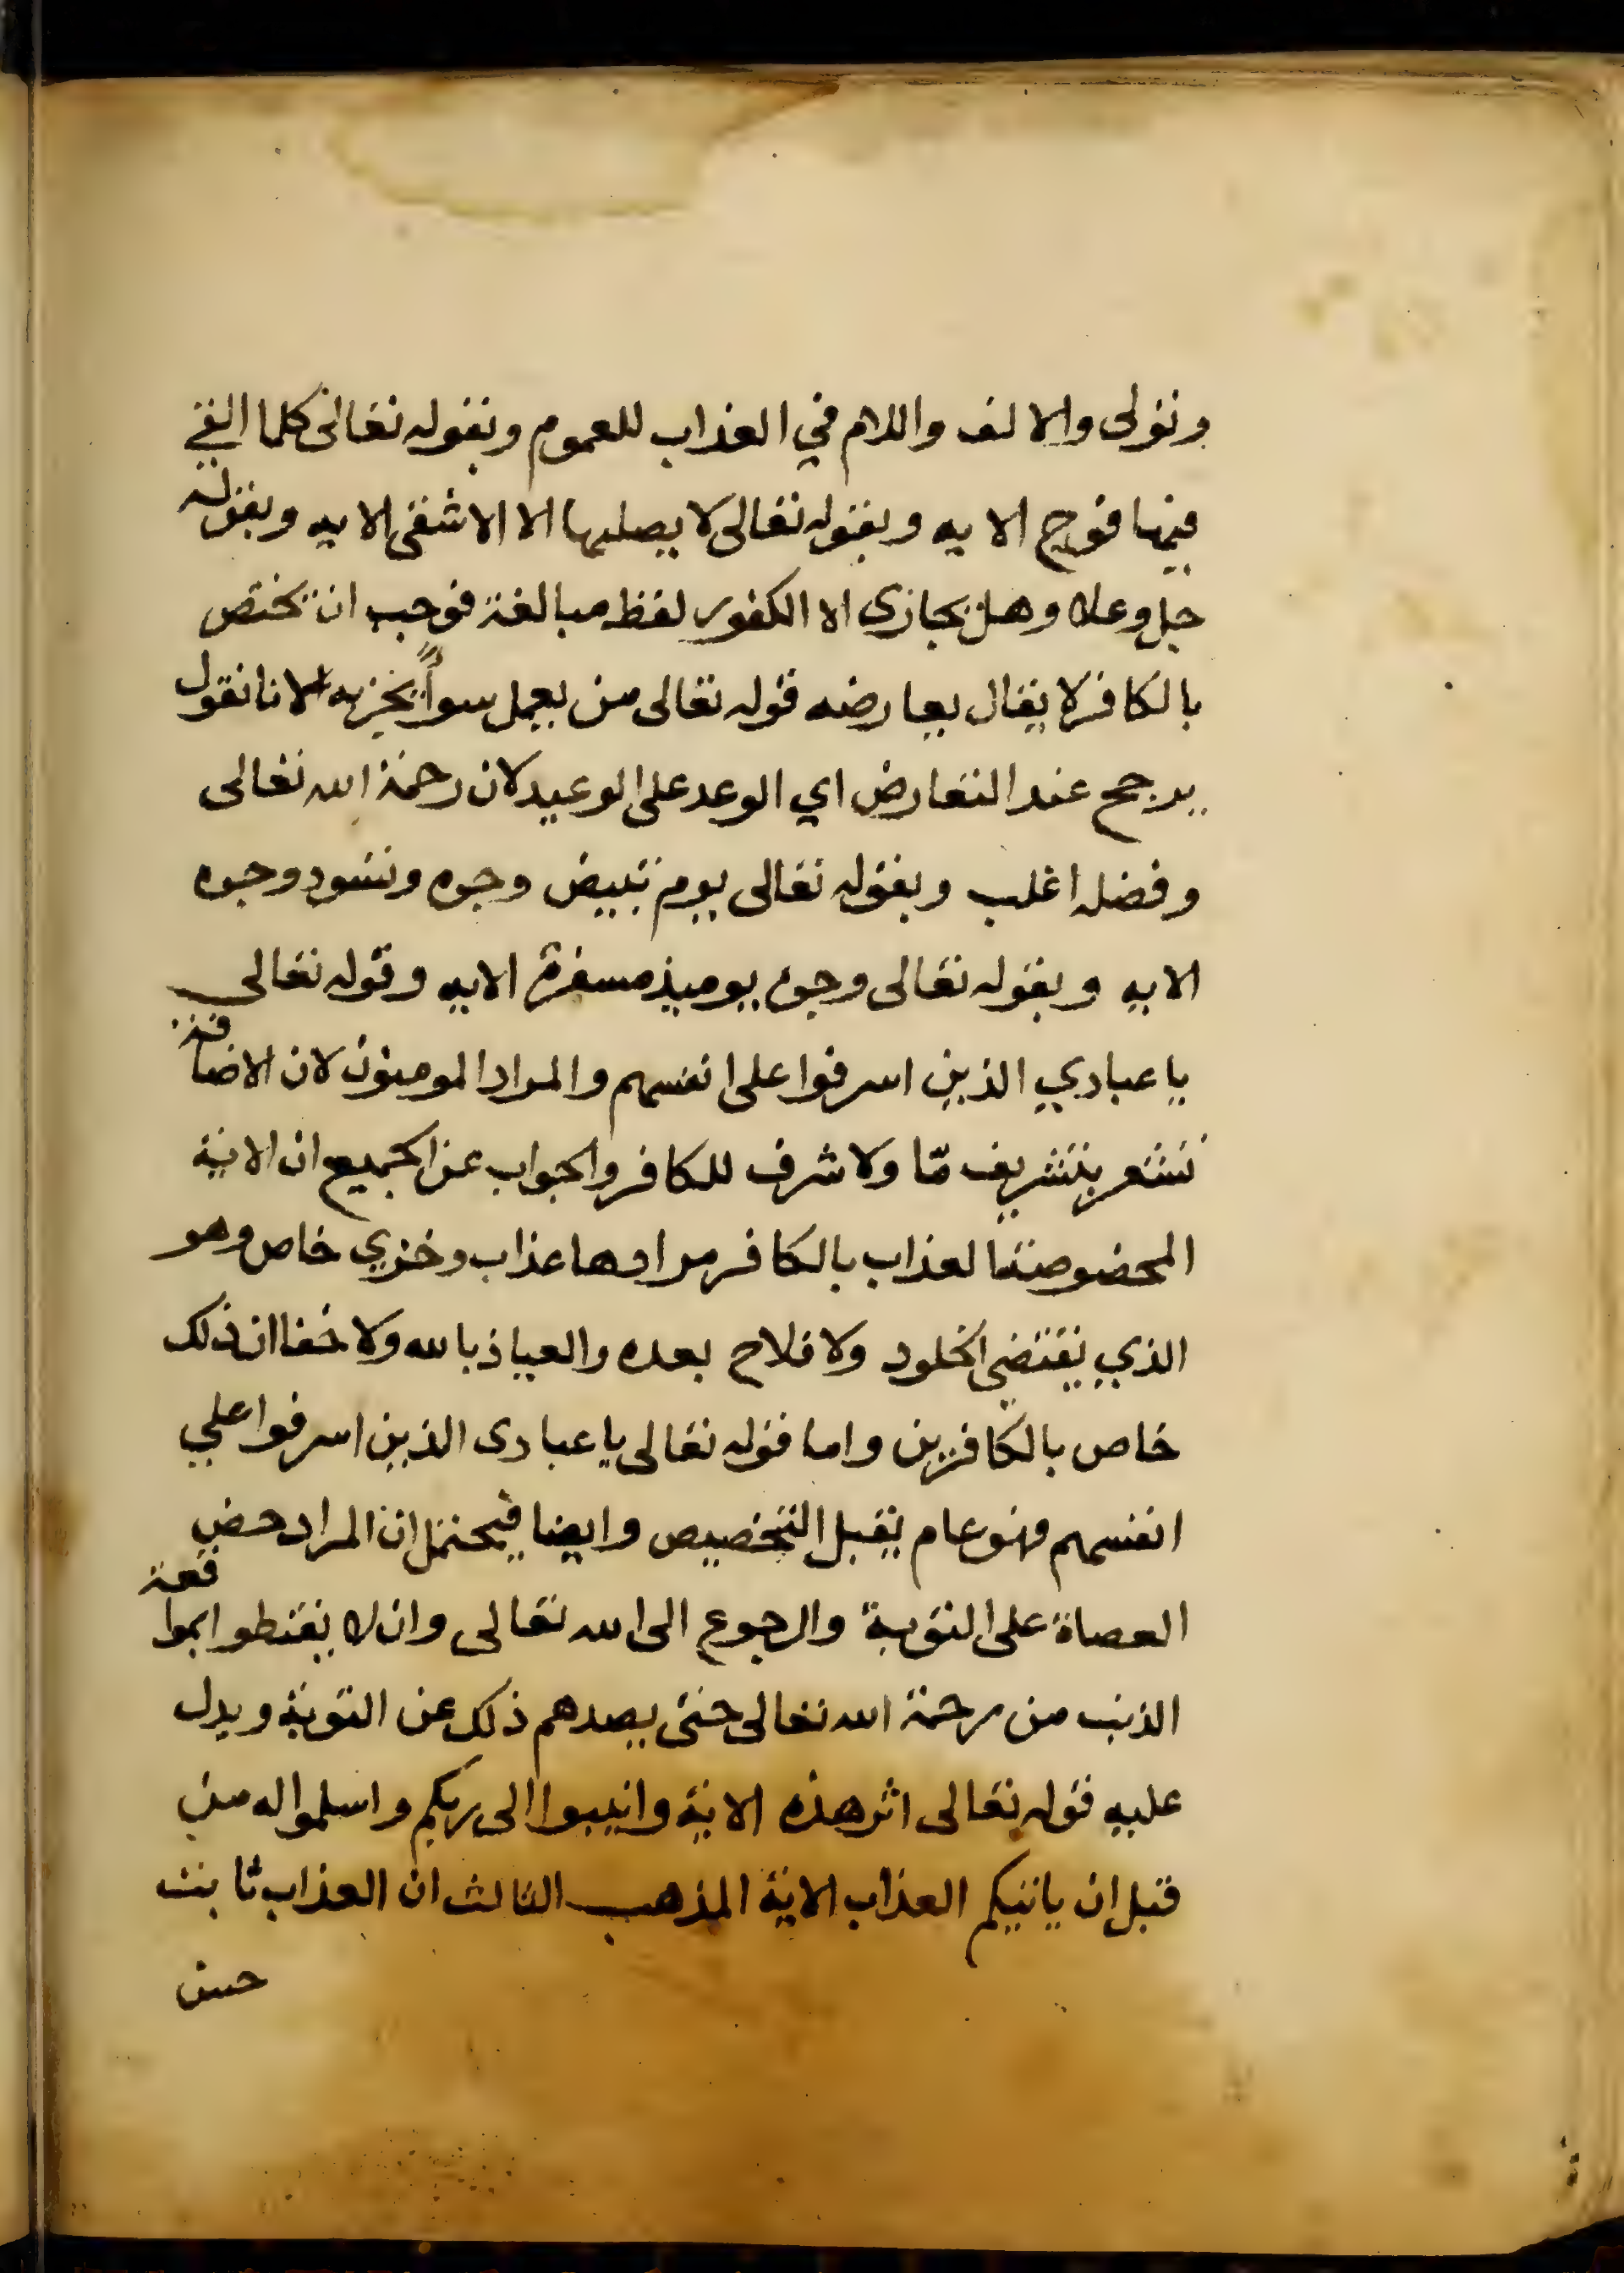 وتولى والالف واللام في العذاب للعموم وبقوله تعالى كلما القي
فيها فوج الايه وبقوله تعالى لا يصليها الا الاشقى الايه وبقوله
جل وعلا وهل يجازى الا الكفور لفظ مبالغة فوجب ان تختص
بالكافر لا يقال يعارضه قوله تعالى من يعمل سواً يجز به لانا نقول
يرجح عند التعارض اي الوعد على الوعيد لان رحمة الله تعالى
وفضله اغلب وبقوله تعالى يوم تبيض وجوه وتسود وجوه
الايه وبقوله تعالى وجوه يوميذ مسفرة الايه وقوله تعالى
يا عبادي الذين اسرفوا على انفسهم والمراد المومنون لان الاضافة
تشعر بتشريف مّا ولا شرف للكافر والجواب عن الجميع ان الاية
المخصوصة العذاب بالكافر مرادها عذاب وخزي خاص وهو
الذي يقتضي الخلود ولا فلاح بعده والعياذ بالله ولا خفا ان ذلك
خاص بالكافرين واما قوله تعالى يا عبادى الذين اسرفوا علي
انفسهم فهو عام يقبل التخصيص وايضا فيحتمل ان المراد حض
العصاة على التوبة والرجوع الى الله تعالى وان لا يقنطوا بمواقعة
الذنب من رحمة الله تعالى حتى يصدهم ذلك عن التوبة ويدل
عليه قوله تعالى اثر هذه الاية وانيبوا الى ربكم واسلموا له من
قبل ان ياتيكم العذاب الاية المذهب الثالث ان العذاب ثابت